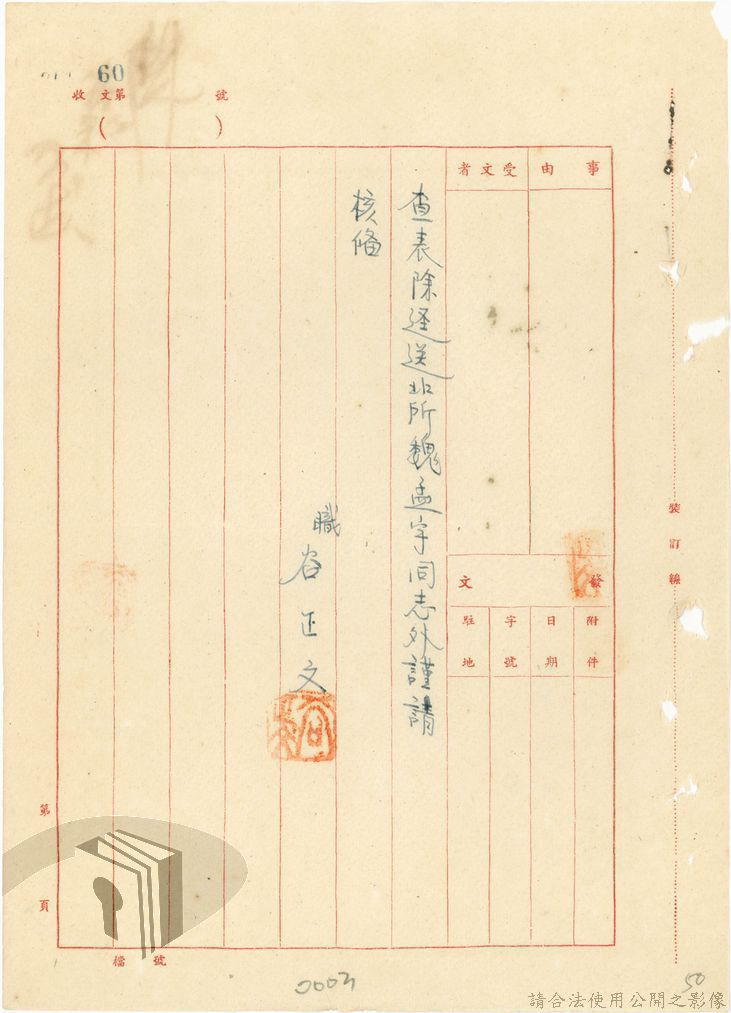 60
收文第 號
( )
事由
受文者
發文
附件
日期
字號
駐地
查表除逕送北所魏孟宇同志外謹請
核備
職 谷正文
裝訂線
第 頁
檔 號
0003
50
請合法使用公開之影像